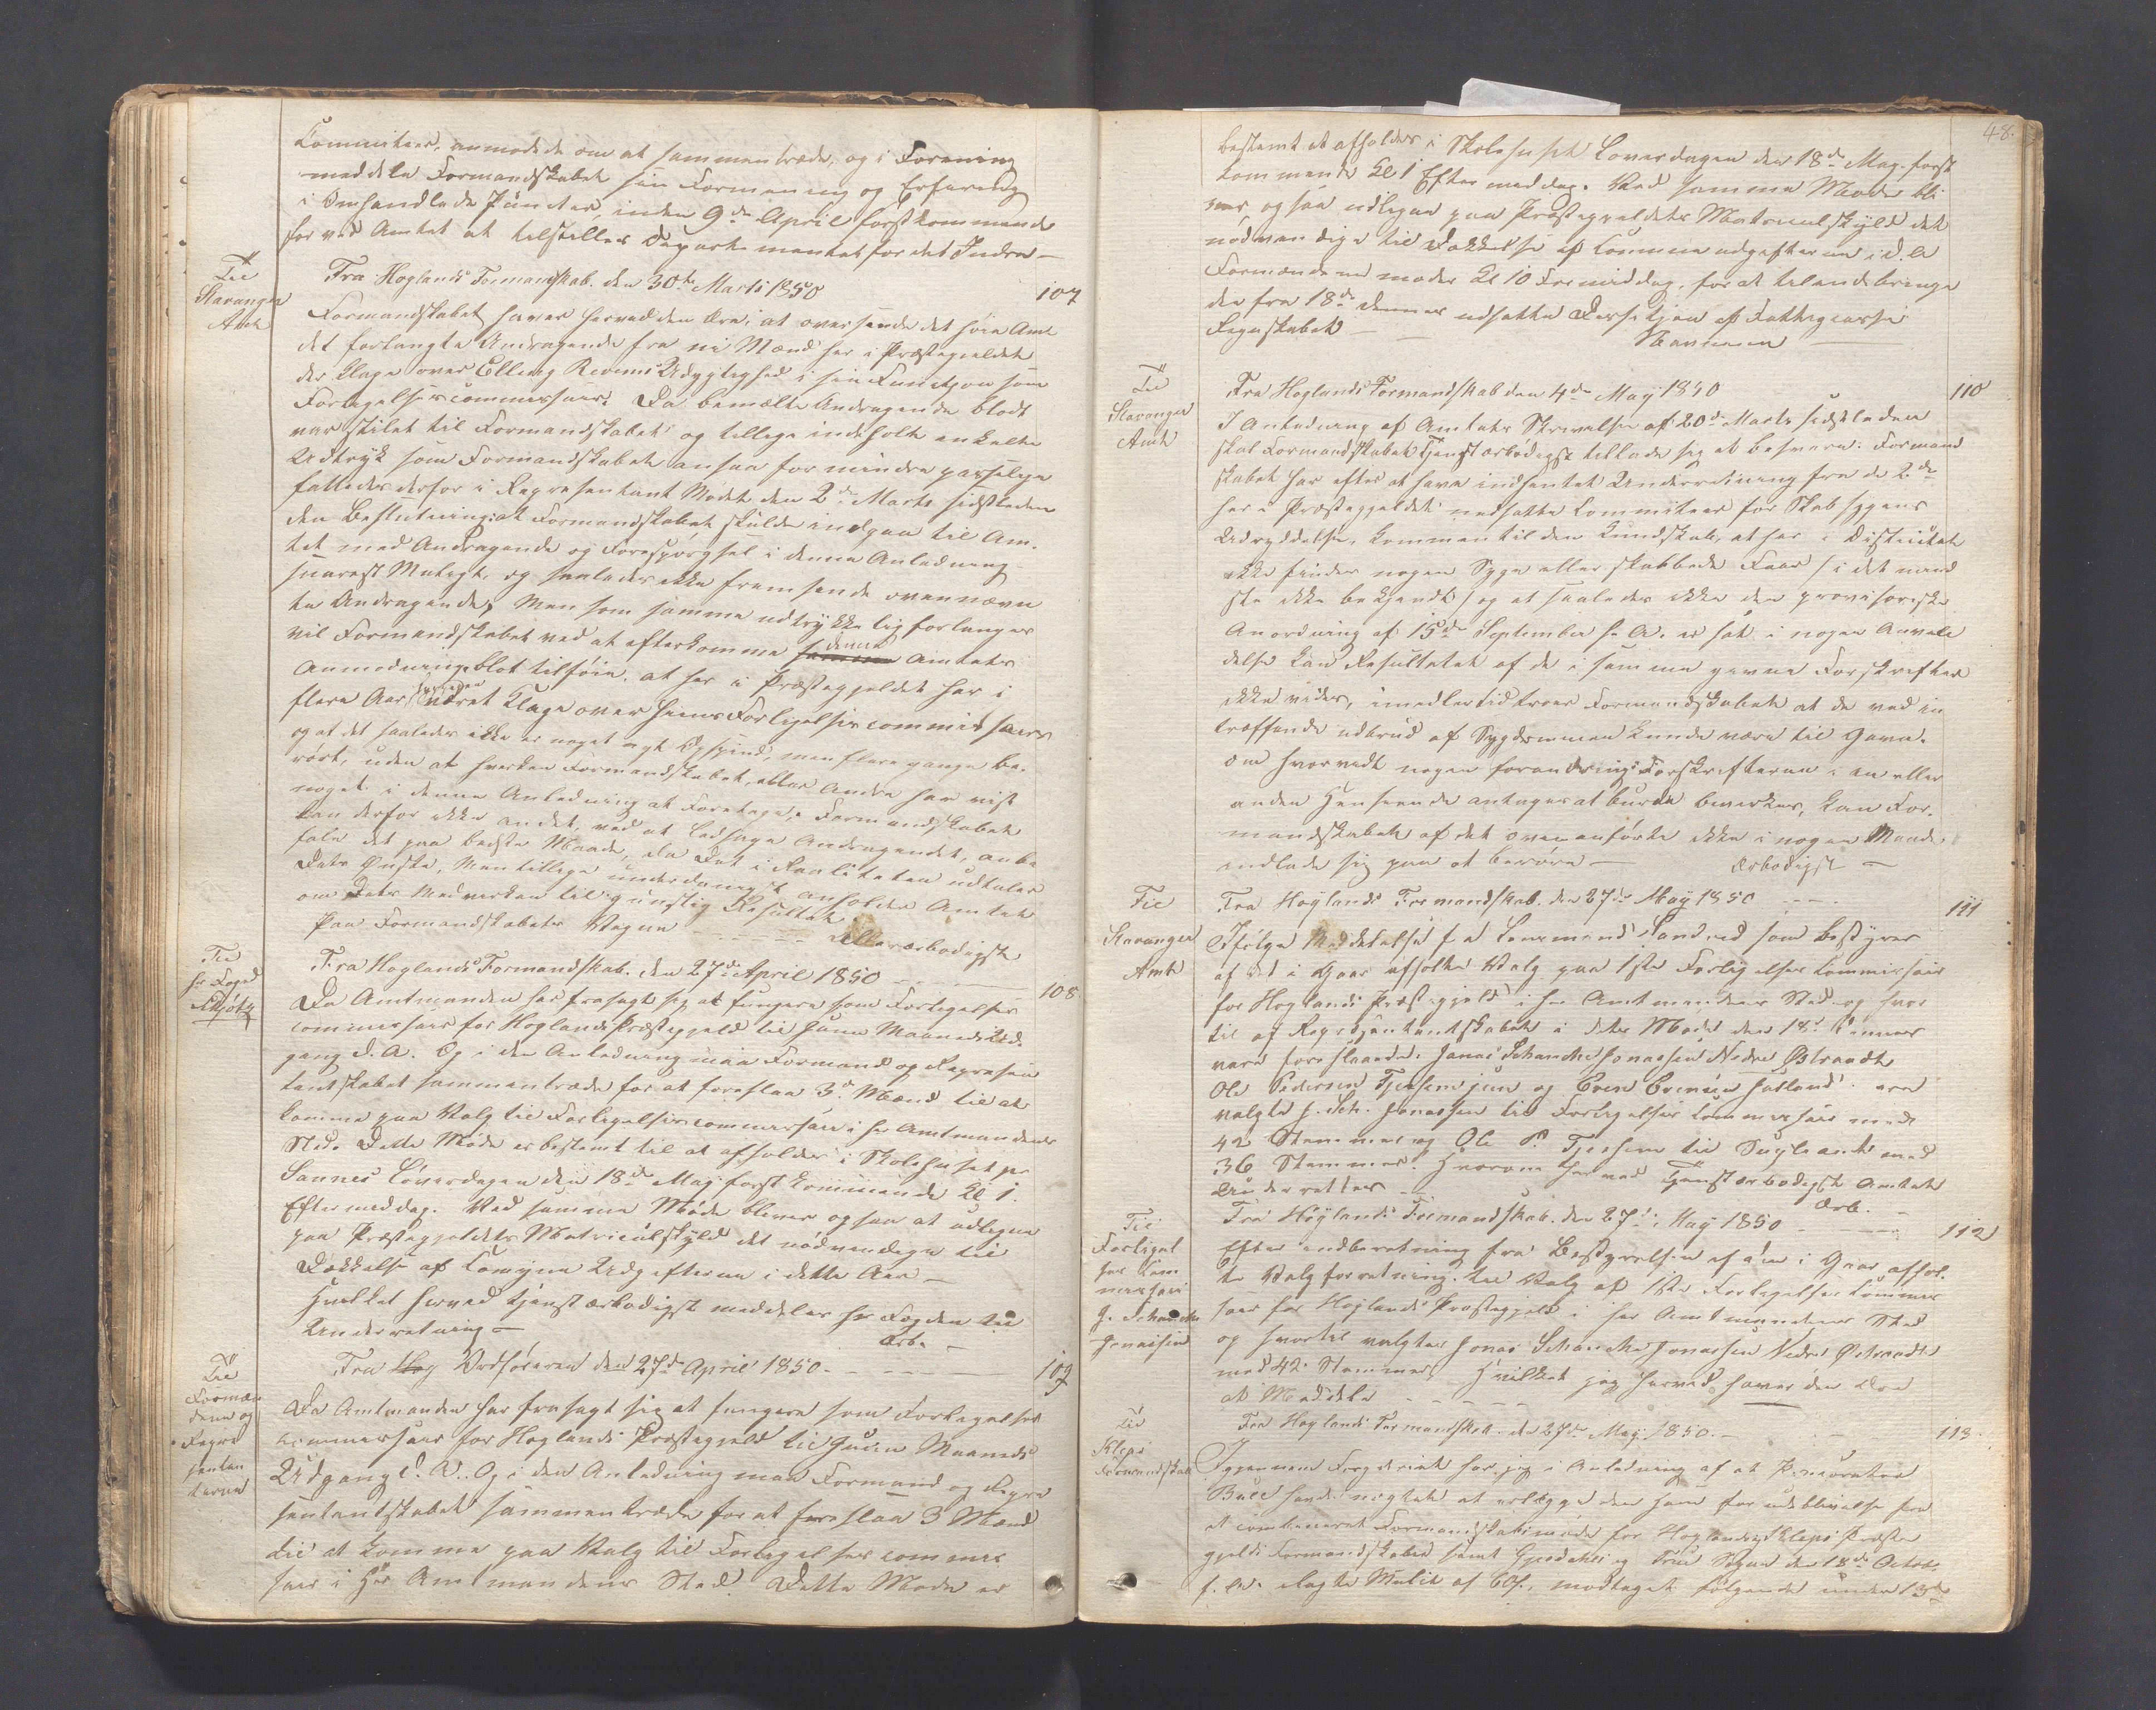 Committeer, anmodede om at sammentræde, og i Forening
meddele Formandskabet sin Formening og Erfaring
i Omhandlede Puncter, inden 9de April førstkommende
for ved Amtet at tilstilles Departementet for det Indre —
Til
Stavanger
Amt
Fra Høglands Formandskab. den 30te Marts 1850
107
Formandskabet haver herved den Ære, at oversende det høie Amt
det forlangte Andragende fra ni Mænd her i Præstegjeldet
der klage over Elling Udygtighed i sin Function som
Forligelsescommissair. Da bemældte Andragende blodt
var stilet til Formandskabet og tillige indeholte enkelte
Udtryk som Formandskabet ansaa for mindre passelige
fattedes derfor i Repræsentant Mødet den 2den Marts sidstleden
den Beslutning: at Formandskabet skulde indgaa til Am-
tet med Andragende og Forespørgsel i denne Anledning
snarest Muligt, og saaledes ikke fremsende ovennævn
te Andragende, Men som samme udtrykkelig forlanges
vil Formandskabet ved at efterkomme denne Amtets
Anmodning blot tilføie, at her i Præstegjeldet har i
flere Aar været Klage over Forligelsescommissairen
og at det saaledes ikke er noget nyt Opspind, men flere gange be-
rørt, uden at hverken Formandskabet eller Andre har vist
noget i denne Anledning at Foretage. Formandskabet
kan derfor ikke andet, ved at ledsage Andragendet, anbe
fale det paa bedste Maade, da Det i Realiteten udtaler
Dets Ønske, Men tillige underdanigst anholder Amtet
om Dets Medvirken til gunstig Resultat
Paa Formandskabets Vegne — — — Allerærbødigst
Til
hr Foged
Skjøtz
Fra Høglands Formandskab. den 27de April 1850 —
108
Da Amtmanden har frasagt sig at fungere som Forligelses
commissair for Høglands Præstegjeld til Juni Maaneds Ud-
gang d. A. Og i den Anledning maa Formand og Repræsen
tantskabet sammentræde for at foreslaa 3de Mænd til at
komme paa Valg til Forligelsescommissair i hr Amtmandens
Sted. Dette Møde er bestemt til at afholdes i Skolehuset paa
Sannes Løverdagen den 18de May først kommende Kl 1.
Eftermeddag. Ved samme Møde bliver ogsaa at udligne
paa Præstegjeldets Matriculskyld det nødvendige til
Dækkelse af Comune Udgifterne i dette Aar —
Hvilket herved tjenst ærbødigst meddeles hr Fogden til
Underretning —
Ærb. —
Til
Formæn
dene og
Repræ
sentan
terne
Fra Ordføreren den 27de April 1850 — — —
109
Da Amtmanden har frasagt sig at fungere som Forligelses
commissair for Høglands Præstegjeld til Juni Maaneds
Udgang d. A. Og i den Anledning maa Formand og Repræ
sentantskabet sammentræde for at foreslaa 3 Mænd
til at komme paa Valg til Forligelses commis
sair i Hr Amtmandens Sted. Dette Møde er
48.
bestemt at afholdes i Skolehuset Løverdagen den 18de May først
kommende Kl 1 Eftermeddag. Ved samme Møde bli
ver ogsaa udligne paa Præstegjeldets Matriculskyld det
nødvendige til Dækkelse af Commune udgifterne i d. A.
Formændene møder Kl 10 Formiddag, for at tilendebringe
den fra 18de dennes udsatte Decision af Fattigcasse
Regnskabet —
Til
Stavanger
Amt
Fra Høglands Formandskab den 4de May 1850
110
I Anledning af Amtets Skrivelse af 20de Marts sidstleden
skal Formandskabet Tjenst ærbødigst tillade sig at besvare: Formand
skabet har efter at have indhentet Underretning fra de 2de
her i Præstegjeldet nedsatte Commiteer for Skabsygens
Udryddelse, kommen til den Kundskab, at her i Districtet
ikke findes nogen Syge eller skabbede Faar (i det mind
ste ikke bekjendt) og at saaledes ikke den provisoriske
Anordning af 15de September f. A. er sat i nogen Anven
delse kan Resultatet af de i samme givne Forskrifter
ikke vides, imedlertid troer Formandskabet at de ved in
træffende udbrud af Sygdommen kunde være til Gavn.
om hvorvidt nogen forandring i Forskrifterne i en eller
anden Henseende antages at burde bevirkes, kan For-
mandskabet af det ovenanførte ikke i nogen Maade
indlade sig paa at berøre — Ærbødigst —
Til
Stavanger
Amt
Fra Høglands Formandskab. den 27de May 1850 — —
111
Ifølge Meddelelse fra Lensmand som bestyrer
af det i Gaar afholte Valg paa 1ste Forligelses Commissair
for Høglands Præstegjeld i hr Amtmandens Sted og hvor
til af Repræsentantskabet i dets Møde den 18de dennes
vare foreslaaede: Jonas Schanche Jonassen Nedre Østraadt,
Ole Pedersen Tjessem jun og Even Evensen Høiland. ere
valgte J. Sch. Jonassen til Forligelses Commissair med
42 Stemmer og Ole P. Tjessem til Supleant med
36 Stemmer. Hvorom herved Tjenst ærbødigst Amtet
Underrettes — Ærb. —
Til
Forligel
ses Com
missair
J. Schanche
Jonassen
Fra Høylands Formandskab. den 27de May 1850 — —
112
Efter indberetning fra Bestyrelsen af den i Gaar afhol-
te Valgforretning til Valg af 1ste Forligelses Commis
sair for Høylands Præstegjeld i hr Amtmandens Sted
og hvortil valgtes Jonas Schanche Jonassen Nedre Østraadt
med 42 Stemmer. Hvilket jeg herved haver den Ære
at Meddele — — — —
Til
Klepps
Formandskab
Fra Høglands Formandskab. den 27de May 1850. —
113.
Igjennem Fogderiet har jeg i Anledning af at Procurator
Bull havde nægtet at erlægge den ham for udeblivelse fra
et combineret Formandskabsmøde for Høglands og Klepps Præste
gjelds Formandskaber samt Gjesdahls og Sogne den 18de Octob.
f. A. ilagte Mulct af 60 s., modtaget følgende under 13de